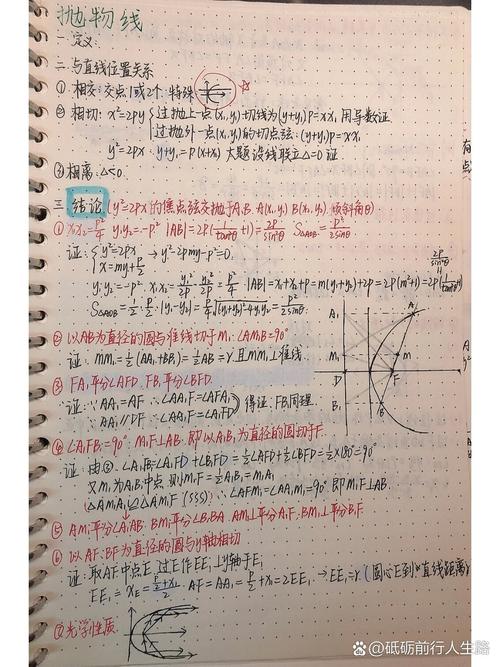 抛物线
一.定义:
二.与直线位置关系
① 相交:交点1或2个.特殊
② 相切: x²=2py {过抛上一点(x₁,y₁)切线为(y+y₁)P=xx₁ 用导数证
过抛外一点(x₁,y₁)的切点弦:(y+y₁)p=xx₁
y²=2px: y·y₁=p(x+x₁) 大题设线联立△=0证
③ 相离:△<0.
三.结论(y²=2px的焦点弦交抛于A,B. A(x₁,y₁) B(x₂,y₂) 倾斜角θ)
① x₁x₂=p²/4 y₁y₂=-p² |AB|=2p(1/tan²θ+1)=2p/sin²θ S△AOB=p²/2sinθ
证:{y²=2px
x=my+p/2 → y²-2pmy-p²=0.
y₁y₂=-p² x₁x₂=y₁²/2p·y₂²/2p=p²/4 |AB|=x₁+x₂+p=m(y₁+y₂)+2p=2p(m²+1)=2p(1/tan²θ+1)
2p/sin²θ
S△AOB=1/2·p/2·|y₁-y₂|=p/4√(y₁+y₂)²-4y₁y₂=p²/2sinθ
② 以AB为直径的圆与准线切于M₁.∠AM₁B=90°
证: MM₁=1/2(AA₁+BB₁)=1/2AB=r 且MM₁⊥准线
③ FA₁平分∠AFD. FB₁平分∠BFD.
证:∵AA₁=AF ∴∠AA₁F=∠AFA₁
∵AA₁∥DF ∴∠AA₁F=∠A₁FD} 得证.FB₁同理
④ ∠A₁FB₁=90° M₁F⊥AB.即以A₁B₁为直径的圆切于F
证:由③.∠A₁FB₁=∠A₁FD+∠B₁FD=1/2∠AFD+1/2∠BFD=1/2×180°=90°
又M₁为A₁B₁中点,则M₁F=1/2A₁B₁=M₁A₁
△AM₁A₁≌△AM₁F (SSS) ∴∠AFM₁=∠AA₁M₁=90° 即M₁F⊥AB.
⑤ AM₁平分∠A₁AB. BM₁平分∠B₁BA. AM₁⊥平分A₁F. BM₁⊥平分B₁F
⑥ 以AF.BF为直径的圆与y轴相切
证:取AF中点E 过E作EE₁⊥y轴于E₁
EE₁=xE=(p/2+x₁)/2. AF=AA₁=p/2+x₁=2EE₁ → EE₁=r(圆心E到直线距离)
⑦ 光学性质.
A₁
A
M₁
M
D
F
B₁
B
知乎 @砥砺前行人生路